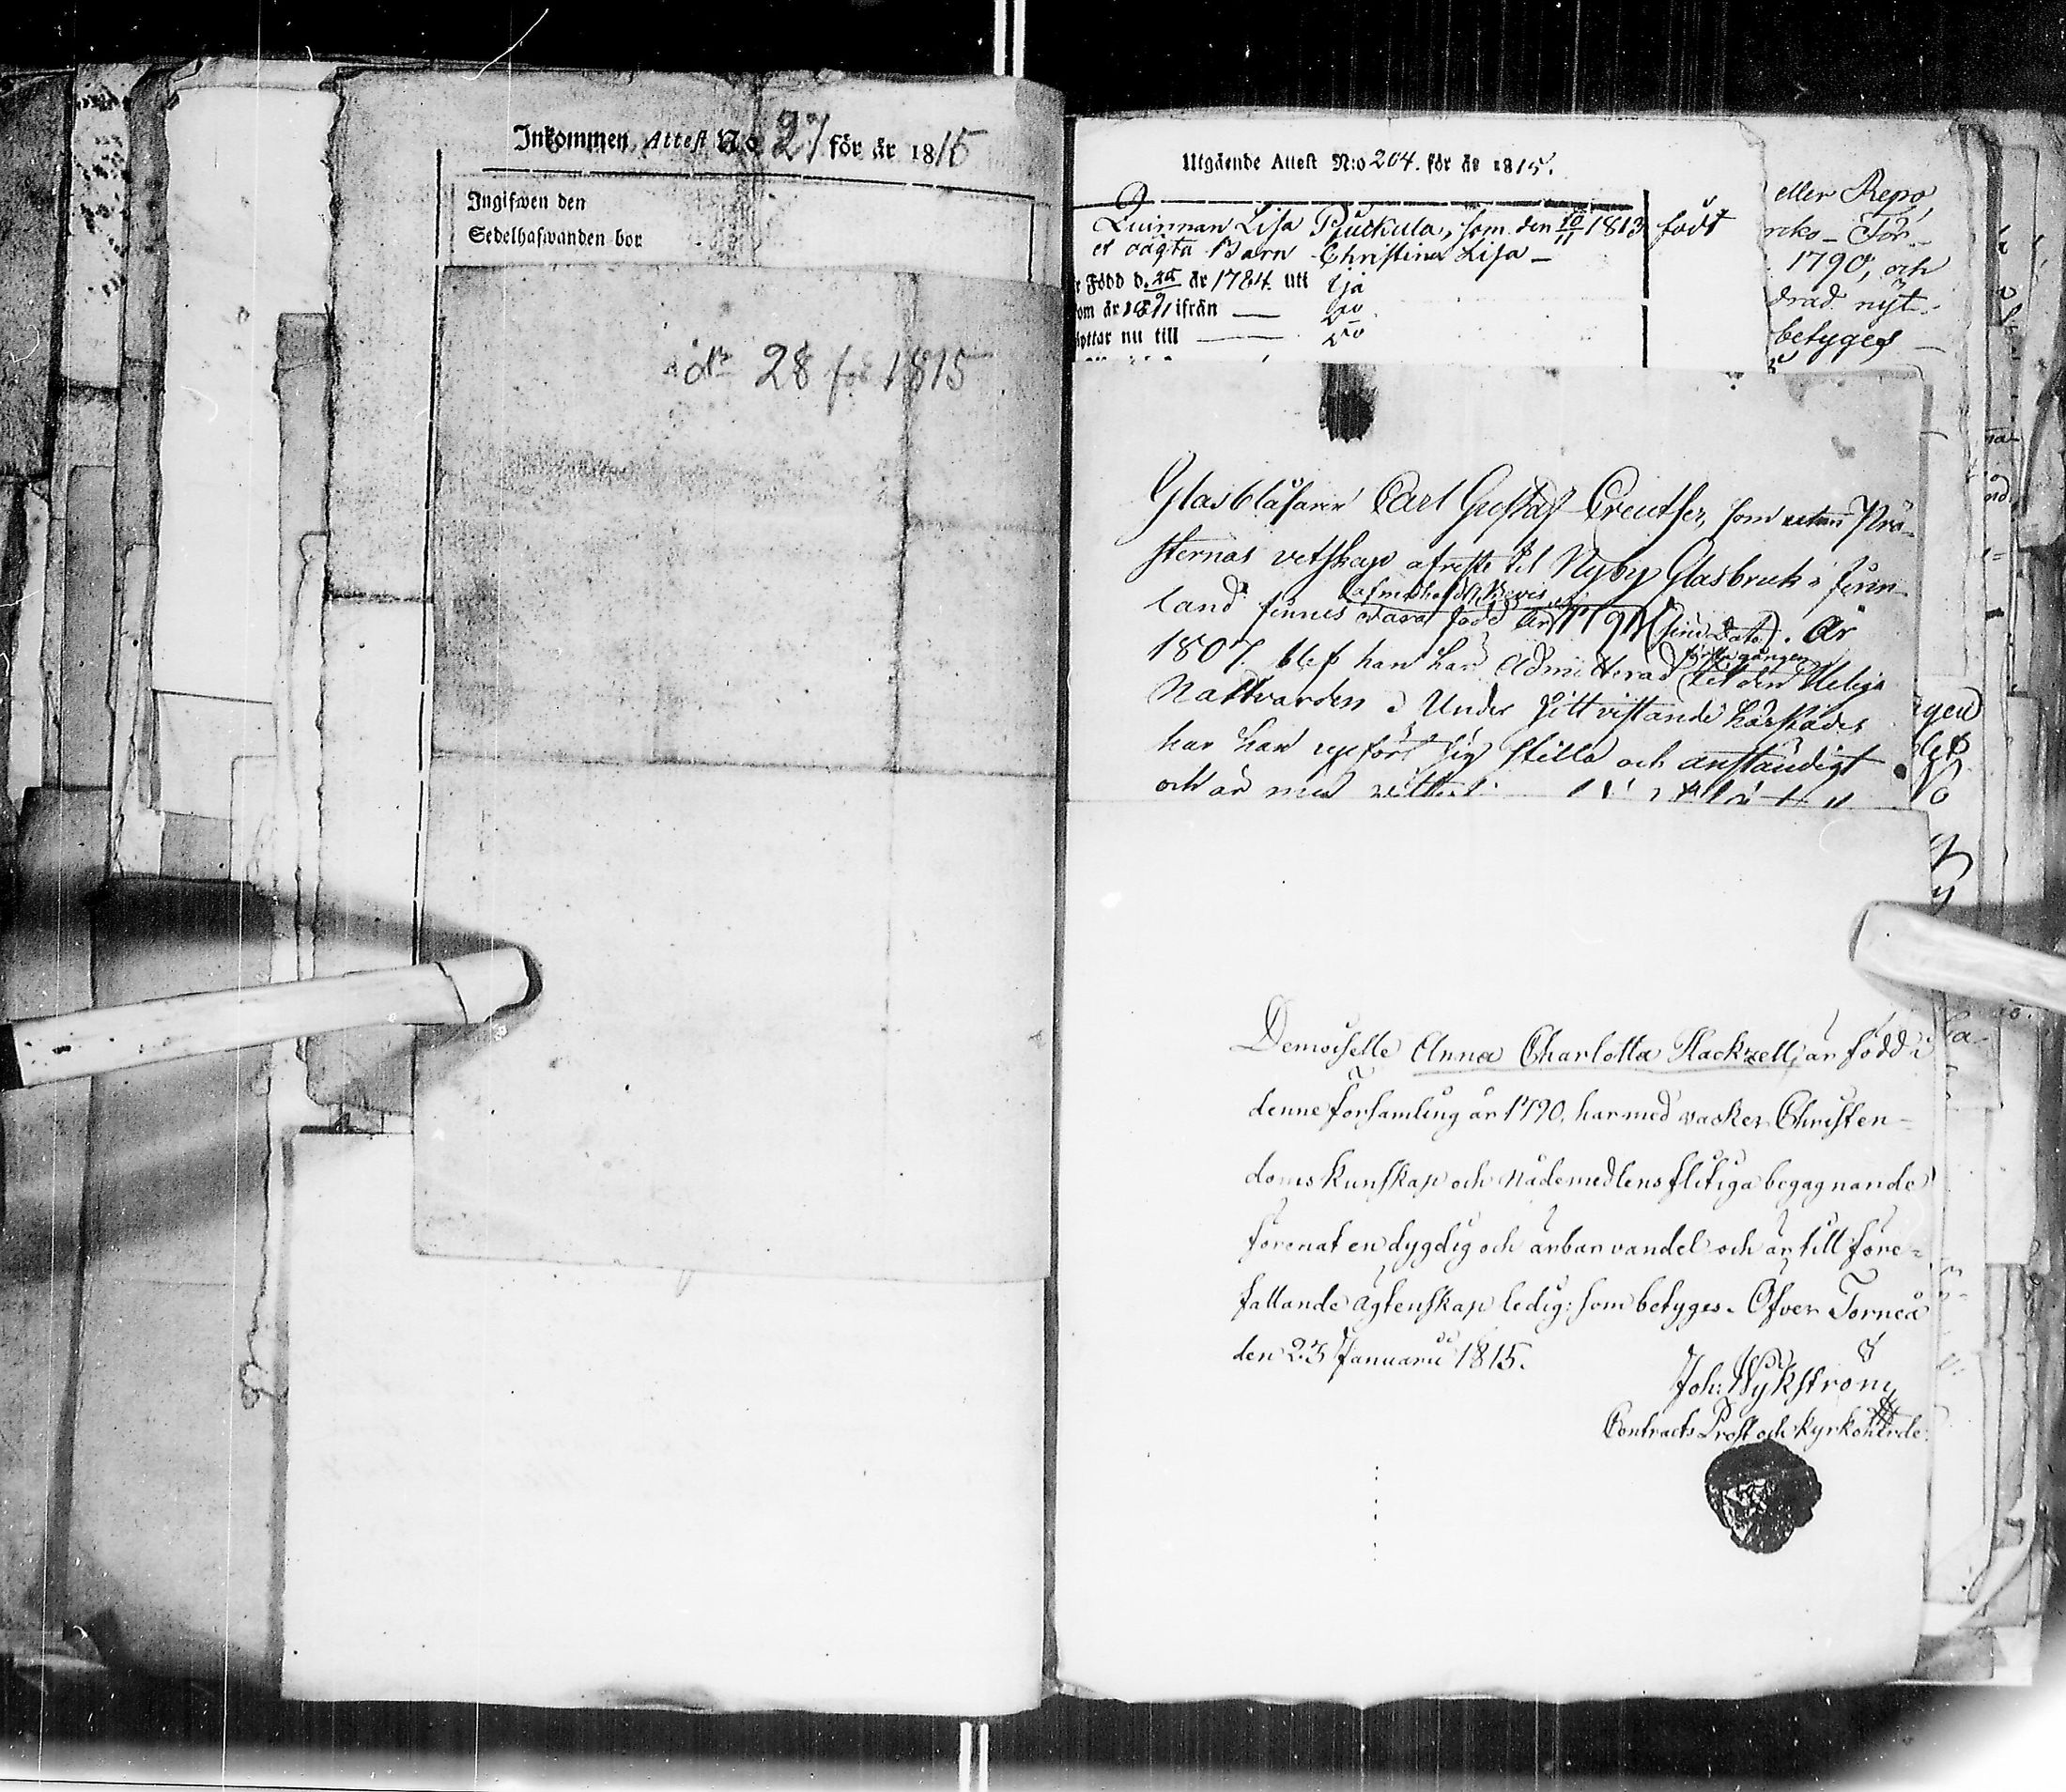 Inkommen Attest N:o 27 för år 1815
Ingifwen den
Sedelhafwanden bor
N:o 28 för 1815
Utgående Attest N:o 204. för år 1815.
Quinnan Lisa Puukula, som den 10/11 1813 födt
et oägta Barn Christina Lisa —
Född d. år 1784. uti Ijå
om år ifrån —
yttar nu till —
eller Repo,
1790, och
drad nyt-
betyges —
Glasblåsaren Carl Gustaf Creutser, som utan Prä-
sternas vetskap afreste til Nyby Glasbruk i Finn-
land finnes vara född år 1791 (sine Dato). År
1807. blef han här Admitterad första gången til den Heliga
Nattvarden. Under sitt vistande härstädes
har han uppfört sig stilla och anständigt
och är med
Demoiselle Anna Charlotta Hackzell, är född i
denne församling år 1790. har med vacker Christen-
doms kunskap och nådemedlens flitiga begagnande
förenat en dygdig och ärbar vandel och är till före-
fallande ägtenskap ledig: som betyges. Öfver Torneå
den 23 Januarii 1815.
Joh: Wykström
Contracts Prost och Kyrkoherde.